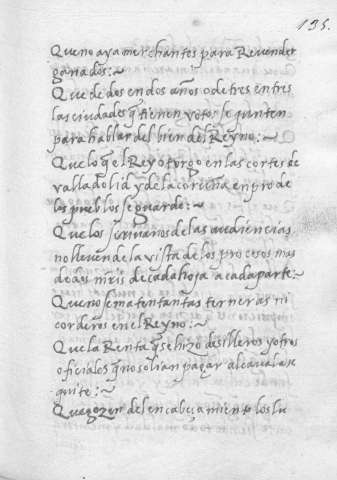 135.
Que no aya merchantes para Revender
ganados:~
Que de dos en dos años o de tres en tres
las ciudades q̃ tienen votos se junten
para hablar del bien del Reyno:~
Que lo q̃ el Rey otorgo en las cortes de
valladolid y de la coruña, en pro de
los pueblos se guarde:~
Que los scriuanos de las audiencias
no lleuen de la vista de los processos mas
de dos mr̃is de cada hoja a cada parte:~
Que no se maten tantas terneras ni
corderos en el Reyno:~
Que la Renta q̃ se hizo de silleros y otros
officiales q̃ no solian pagar alcauala se
quite:~
Que gozen del encabeçamiento los lu